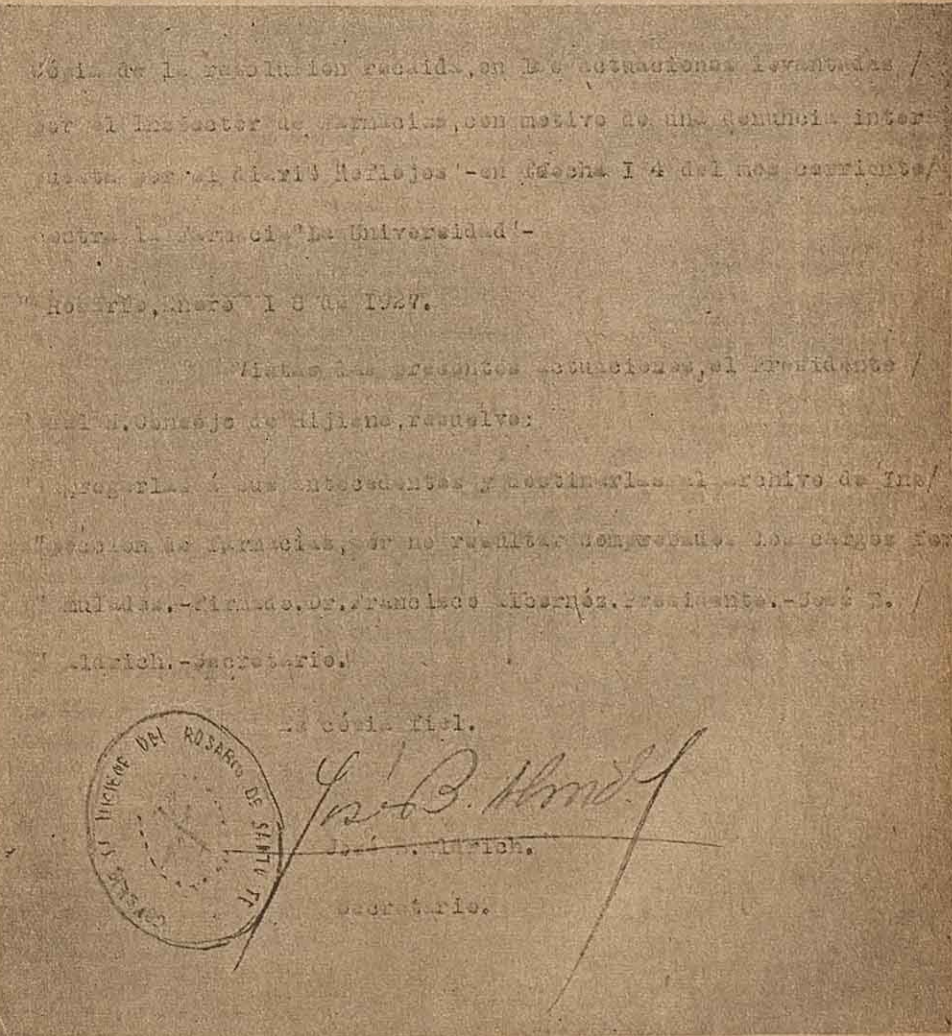 Cópia de la resolución recaida,en las actuaciones levantadas /
por el Inspector de Farmacias,con motivo de una denuncia inter
puesta por el diario Reflejos"-en fecha I 4 del mes corriente/
contra la Farmacia"La Universidad"-
" Rosario,Enero I 8 de 1927.
Vistas las presentes actuaciones,el Presidente /
del H.Consejo de Hijiene,resuelve:
" Agregarlas á sus antecedentes y destinarlas al archivo de Ins/
"pección de farmacias,por no resultar comprobados los cargos for
" mulados.-Firmado.Dr.Francisco .Presidente.-José B. /
" Aldrich.-Secretario."
Es cópia fiel.
CONSEJO DE HIGIENE DEL ROSARIO DE SANTA FE
José B. Aldrich
José B.Aldrich.
Secretario.